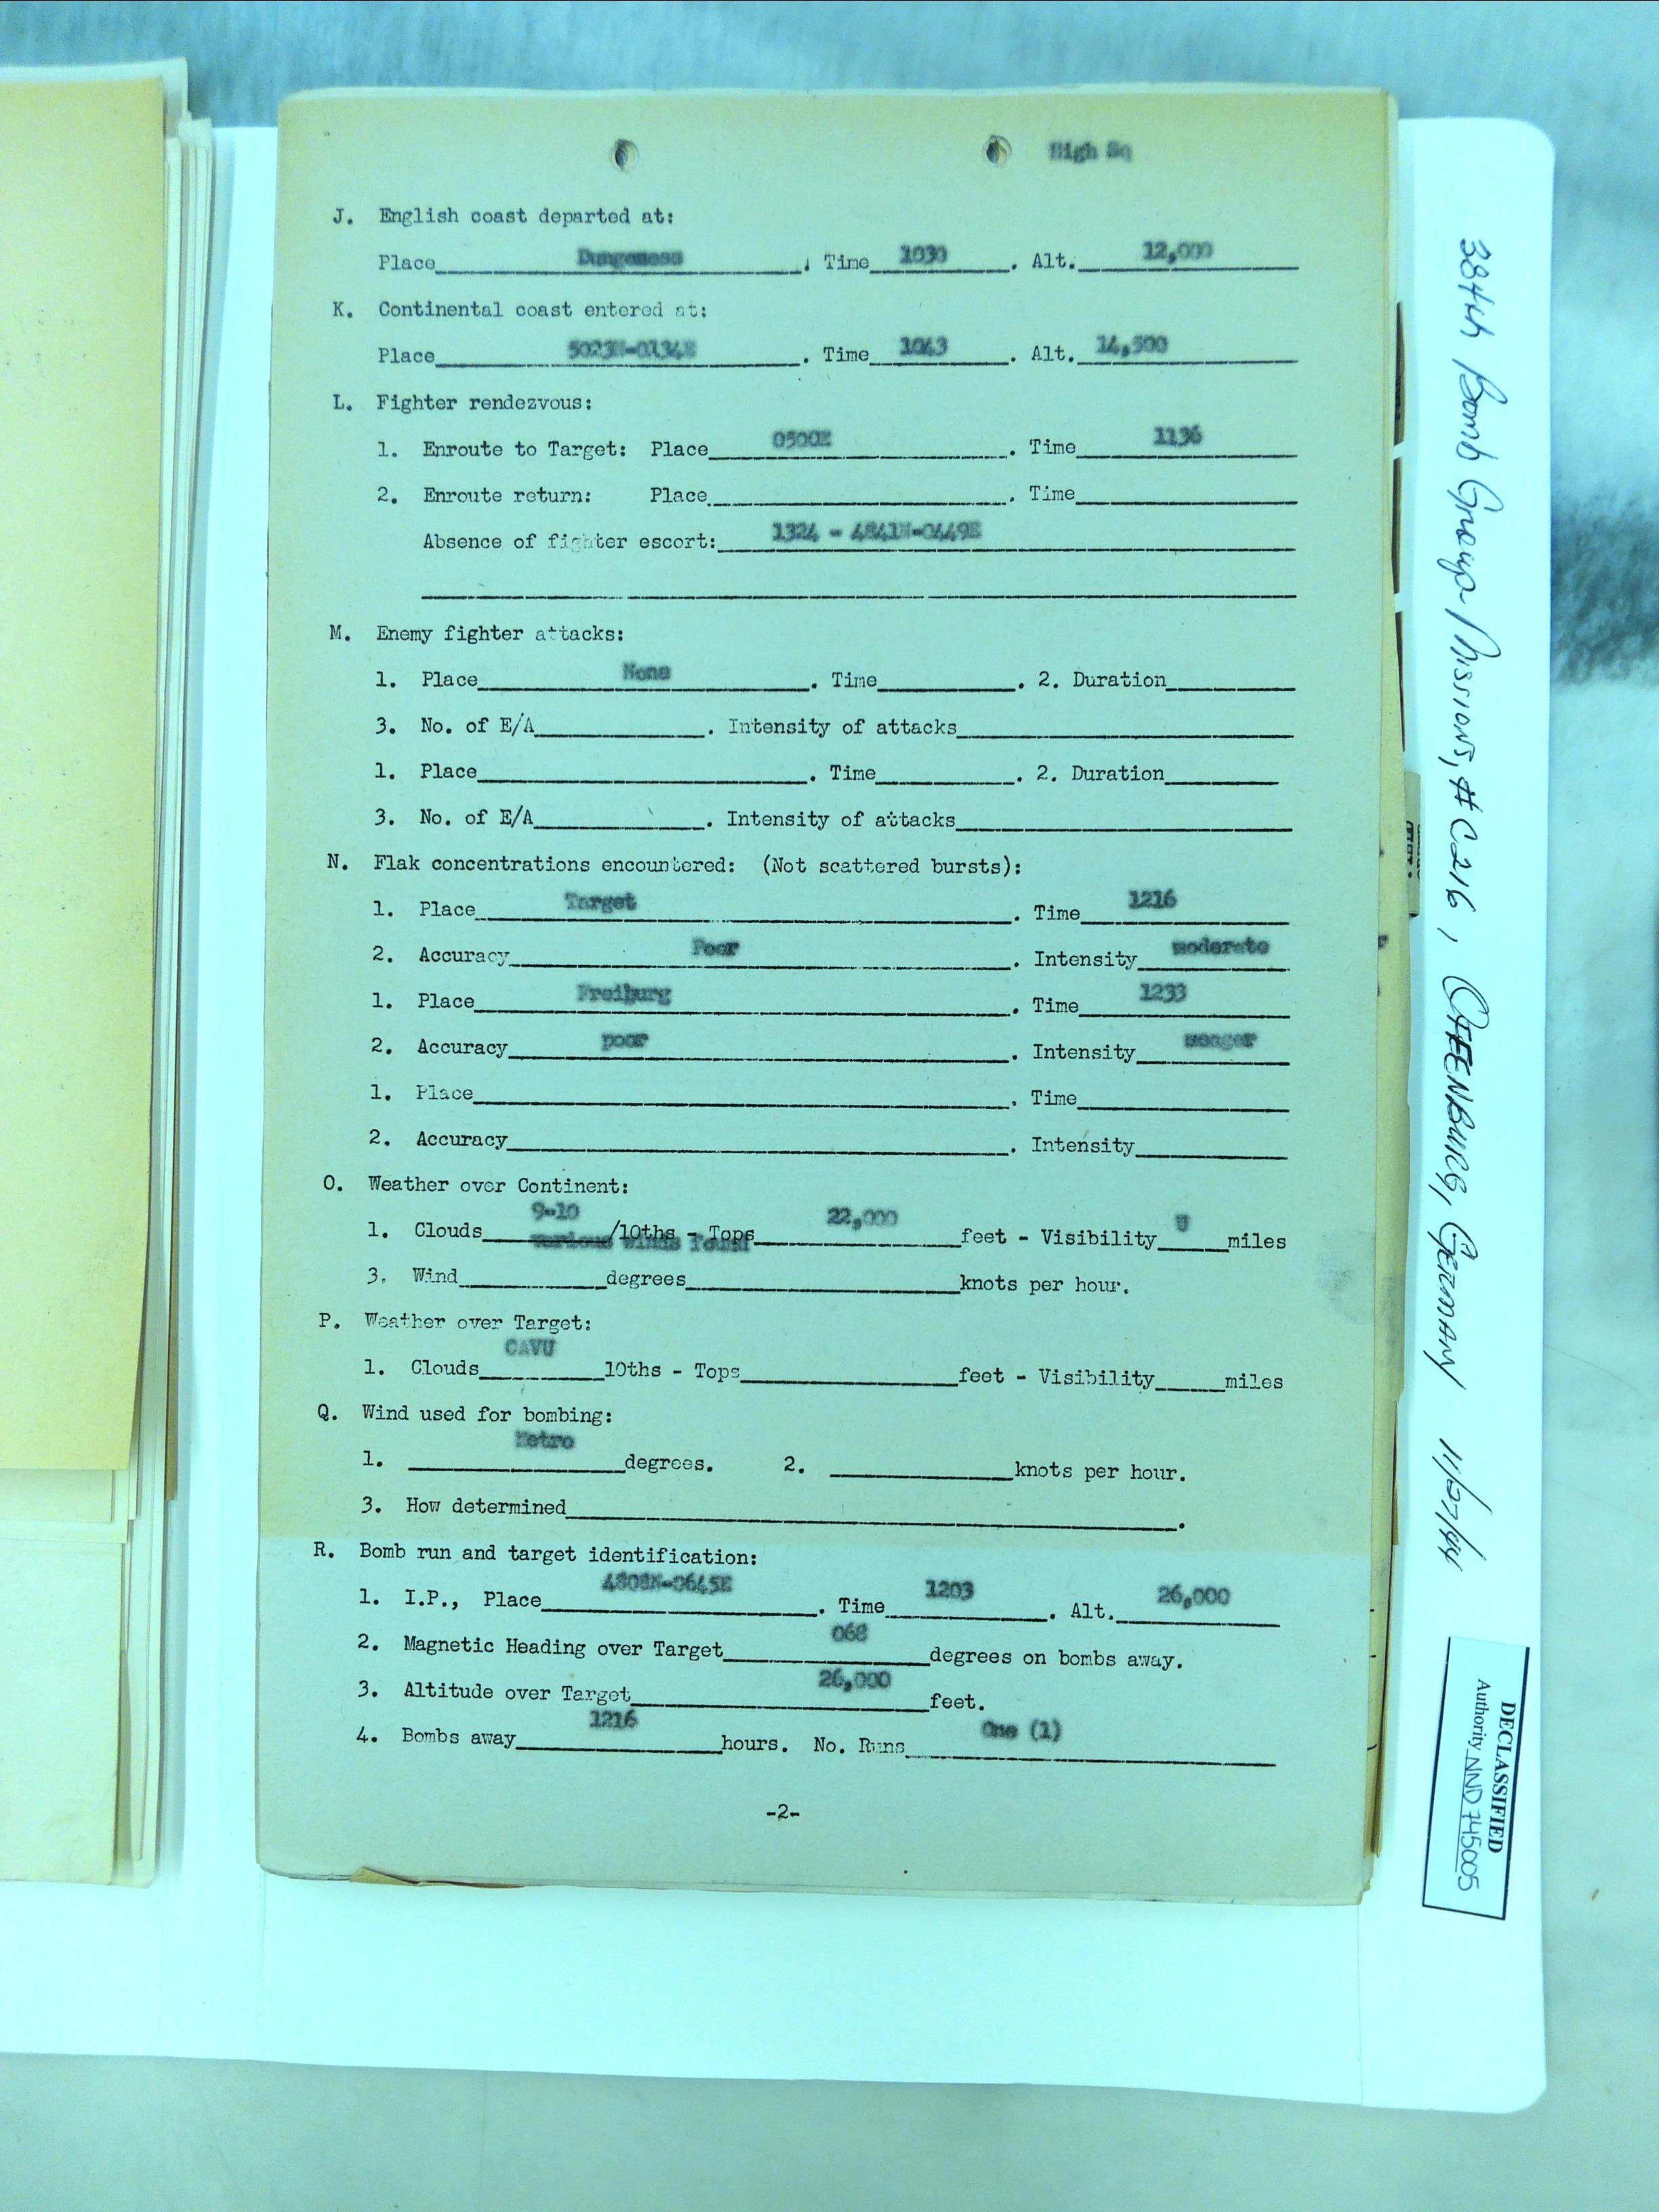 High Sq
J. English coast departed at:
Place Dungeness. Time 1030. Alt. 12,000
K. Continental coast entered at:
Place 5023N-0134E. Time 1043. Alt. 14,500
L. Fighter rendezvous:
1. Enroute to Target: Place 0500E. Time 1136
2. Enroute return: Place. Time
Absence of fighter escort: 1324 - 4841N-0449E
M. Enemy fighter attacks:
1. Place None. Time. 2. Duration
3. No. of E/A. Intensity of attacks
1. Place. Time. 2. Duration
3. No. of E/A. Intensity of attacks
N. Flak concentrations encountered: (Not scattered bursts):
1. Place Target. Time 1216
2. Accuracy Poor. Intensity moderate
1. Place Freiburg. Time 1233
2. Accuracy poor. Intensity meager
1. Place. Time
2. Accuracy. Intensity
O. Weather over Continent:
1. Clouds 9-10/10ths - Tops 22,000 feet - Visibility U miles
various winds found
3. Wind degrees knots per hour.
P. Weather over Target:
1. Clouds CAVU 10ths - Tops feet - Visibility miles
Q. Wind used for bombing:
1. Metro degrees. 2. knots per hour.
3. How determined.
R. Bomb run and target identification:
1. I.P., Place 4808N-0645E. Time 1203. Alt. 26,000
2. Magnetic Heading over Target 068 degrees on bombs away.
3. Altitude over Target 26,000 feet.
4. Bombs away 1216 hours. No. Runs One (1)
-2-
384th Bomb Group Mission, #C216, OFFENBURG, GERMANY 11/27/44
DECLASSIFIED
Authority NND 745005